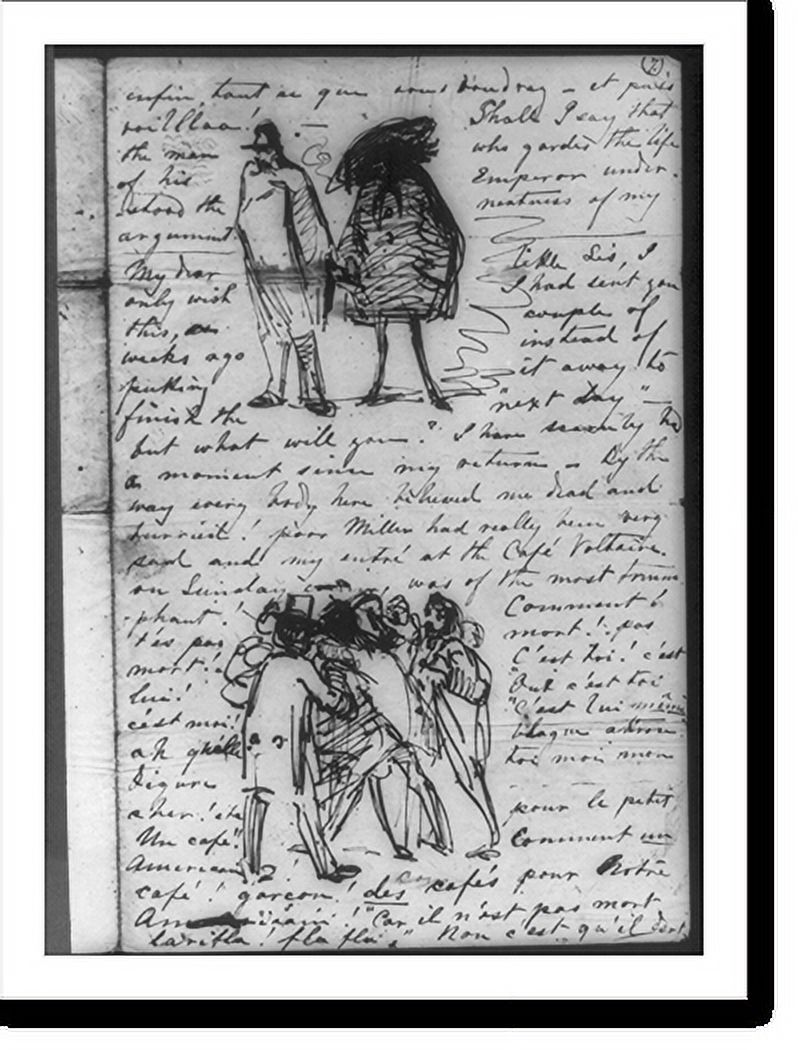 (7)
enfin, tout ce que vous voudrez – et puis
voilllaa! Shall I say that
the man who gardes the life
of his Emperor under-
stood the neatness of my
argument.
My dear little Sis, I
only wish I had sent you
this, a couple of
weeks ago instead of
putting it away to
finish the "next day" –
but what will you? I have scarcely had
a moment since my return – By the
way every body here believed me dead and
burried! poor Miller had really been very
sad and my entré at the Café Voltaire
on Sunday was of the most trium-
phant! Comment!
t'es pas mort! pas
mort! C'est toi! c'est
lui! Oui c'est toi
c'est moi! "C'est lui même
ah quelle blague
figure toi moi mon
cher! pour le petit
Un café! Comment un
American
café! garçon! des cafés pour Notre
Am "Car il n'est pas mort
la rifla! fla fla" Non c'est qu'il dort